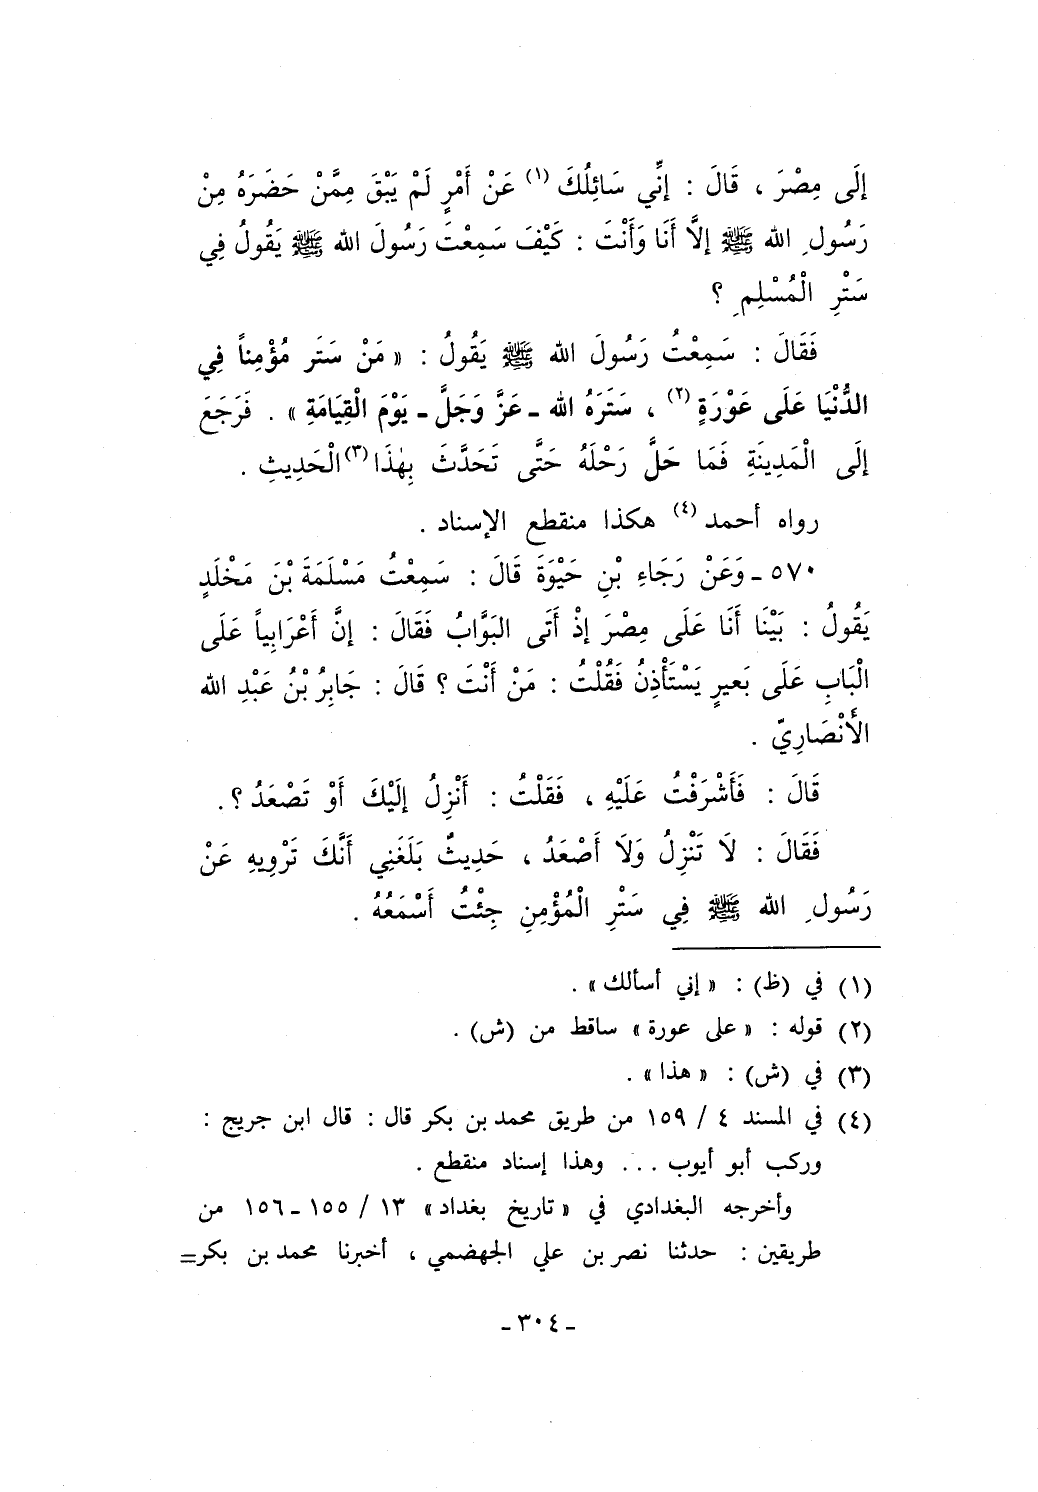 إلَى مِصْرَ ، قَالَ : إنِّي سَائِلُكَ (١) عَنْ أَمْرٍ لَمْ يَبْقَ مِمَّنْ حَضَرَهُ مِنْ
رَسُولِ الله ﷺ إلَّا أَنَا وَأَنْتَ : كَيْفَ سَمِعْتَ رَسُولَ الله ﷺ يَقُولُ فِي
سَتْرِ الْمُسْلِمِ ؟
فَقَالَ : سَمِعْتُ رَسُولَ الله ﷺ يَقُولُ : « مَنْ سَتَر مُؤْمِناً فِي
الدُّنْيَا عَلَى عَوْرَةٍ (٢) ، سَتَرَهُ الله ـ عَزَّ وَجَلَّ ـ يَوْمَ الْقِيَامَةِ » . فَرَجَعَ
إلَى الْمَدِينَةِ فَمَا حَلَّ رَحْلَهُ حَتَّى تَحَدَّثَ بِهٰذَا (٣) الْحَدِيثِ .
رواه أحمد (٤) هكذا منقطع الإسناد .
٥٧٠ ـ وَعَنْ رَجَاءِ بْنِ حَيْوَةَ قَالَ : سَمِعْتُ مَسْلَمَةَ بْنَ مَخْلَدٍ
يَقُولُ : بَيْنَا أَنَا عَلَى مِصْرَ إذْ أَتَى البَوَّابُ فَقَالَ : إنَّ أَعْرَابِياً عَلَى
الْبَابِ عَلَى بَعيرٍ يَسْتَأْذِنُ فَقُلْتُ : مَنْ أَنْتَ ؟ قَالَ : جَابِرُ بْنُ عَبْدِ الله
الأَنْصَارِيّ .
قَالَ : فَأَشْرَفْتُ عَلَيْهِ ، فَقَلْتُ : أَنْزِلُ إلَيْكَ أَوْ تَصْعَدُ ؟ .
فَقَالَ : لَا تَنْزِلُ وَلَا أَصْعَدُ ، حَدِيثٌ بَلَغَنِي أَنَّكَ تَرْوِيهِ عَنْ
رَسُولِ الله ﷺ فِي سَتْرِ الْمُؤْمِنِ جِئْتُ أَسْمَعُهُ .
(١) في (ظ) : « إني أسألك » .
(٢) قوله : « على عورة » ساقط من (ش) .
(٣) في (ش) : « هذا » .
(٤) في المسند ٤ / ١٥٩ من طريق محمد بن بكر قال : قال ابن جريج :
وركب أبو أيوب ... وهذا إسناد منقطع .
وأخرجه البغدادي في « تاريخ بغداد » ١٣ / ١٥٥ ـ ١٥٦ من
طريقين : حدثنا نصر بن علي الجهضمي ، أخبرنا محمد بن بكر=
ـ ٣٠٤ ـ